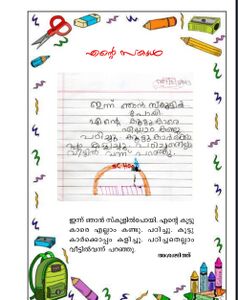 എന്റെ സന്തോഷം
ഇന്ന് ഞാൻ സ്കൂളിൽ
പോയി
എന്റെ കൂട്ടുകാരെ
എല്ലാം കണ്ടു
പഠിച്ചു കൂട്ടുകാർക്കൊപ്പം
കളിച്ചു പഠിച്ചതെല്ലാം
വീട്ടിൽ വന്ന് പറഞ്ഞു.
ഇന്ന് ഞാൻ സ്കൂളിൽപോയി. എന്റെ കൂട്ടു
കാരെ എല്ലാം കണ്ടു. പഠിച്ചു. കൂട്ടു
കാർക്കൊപ്പം കളിച്ചു. പഠിച്ചതെല്ലാം
വീട്ടിൽവന്ന് പറഞ്ഞു.